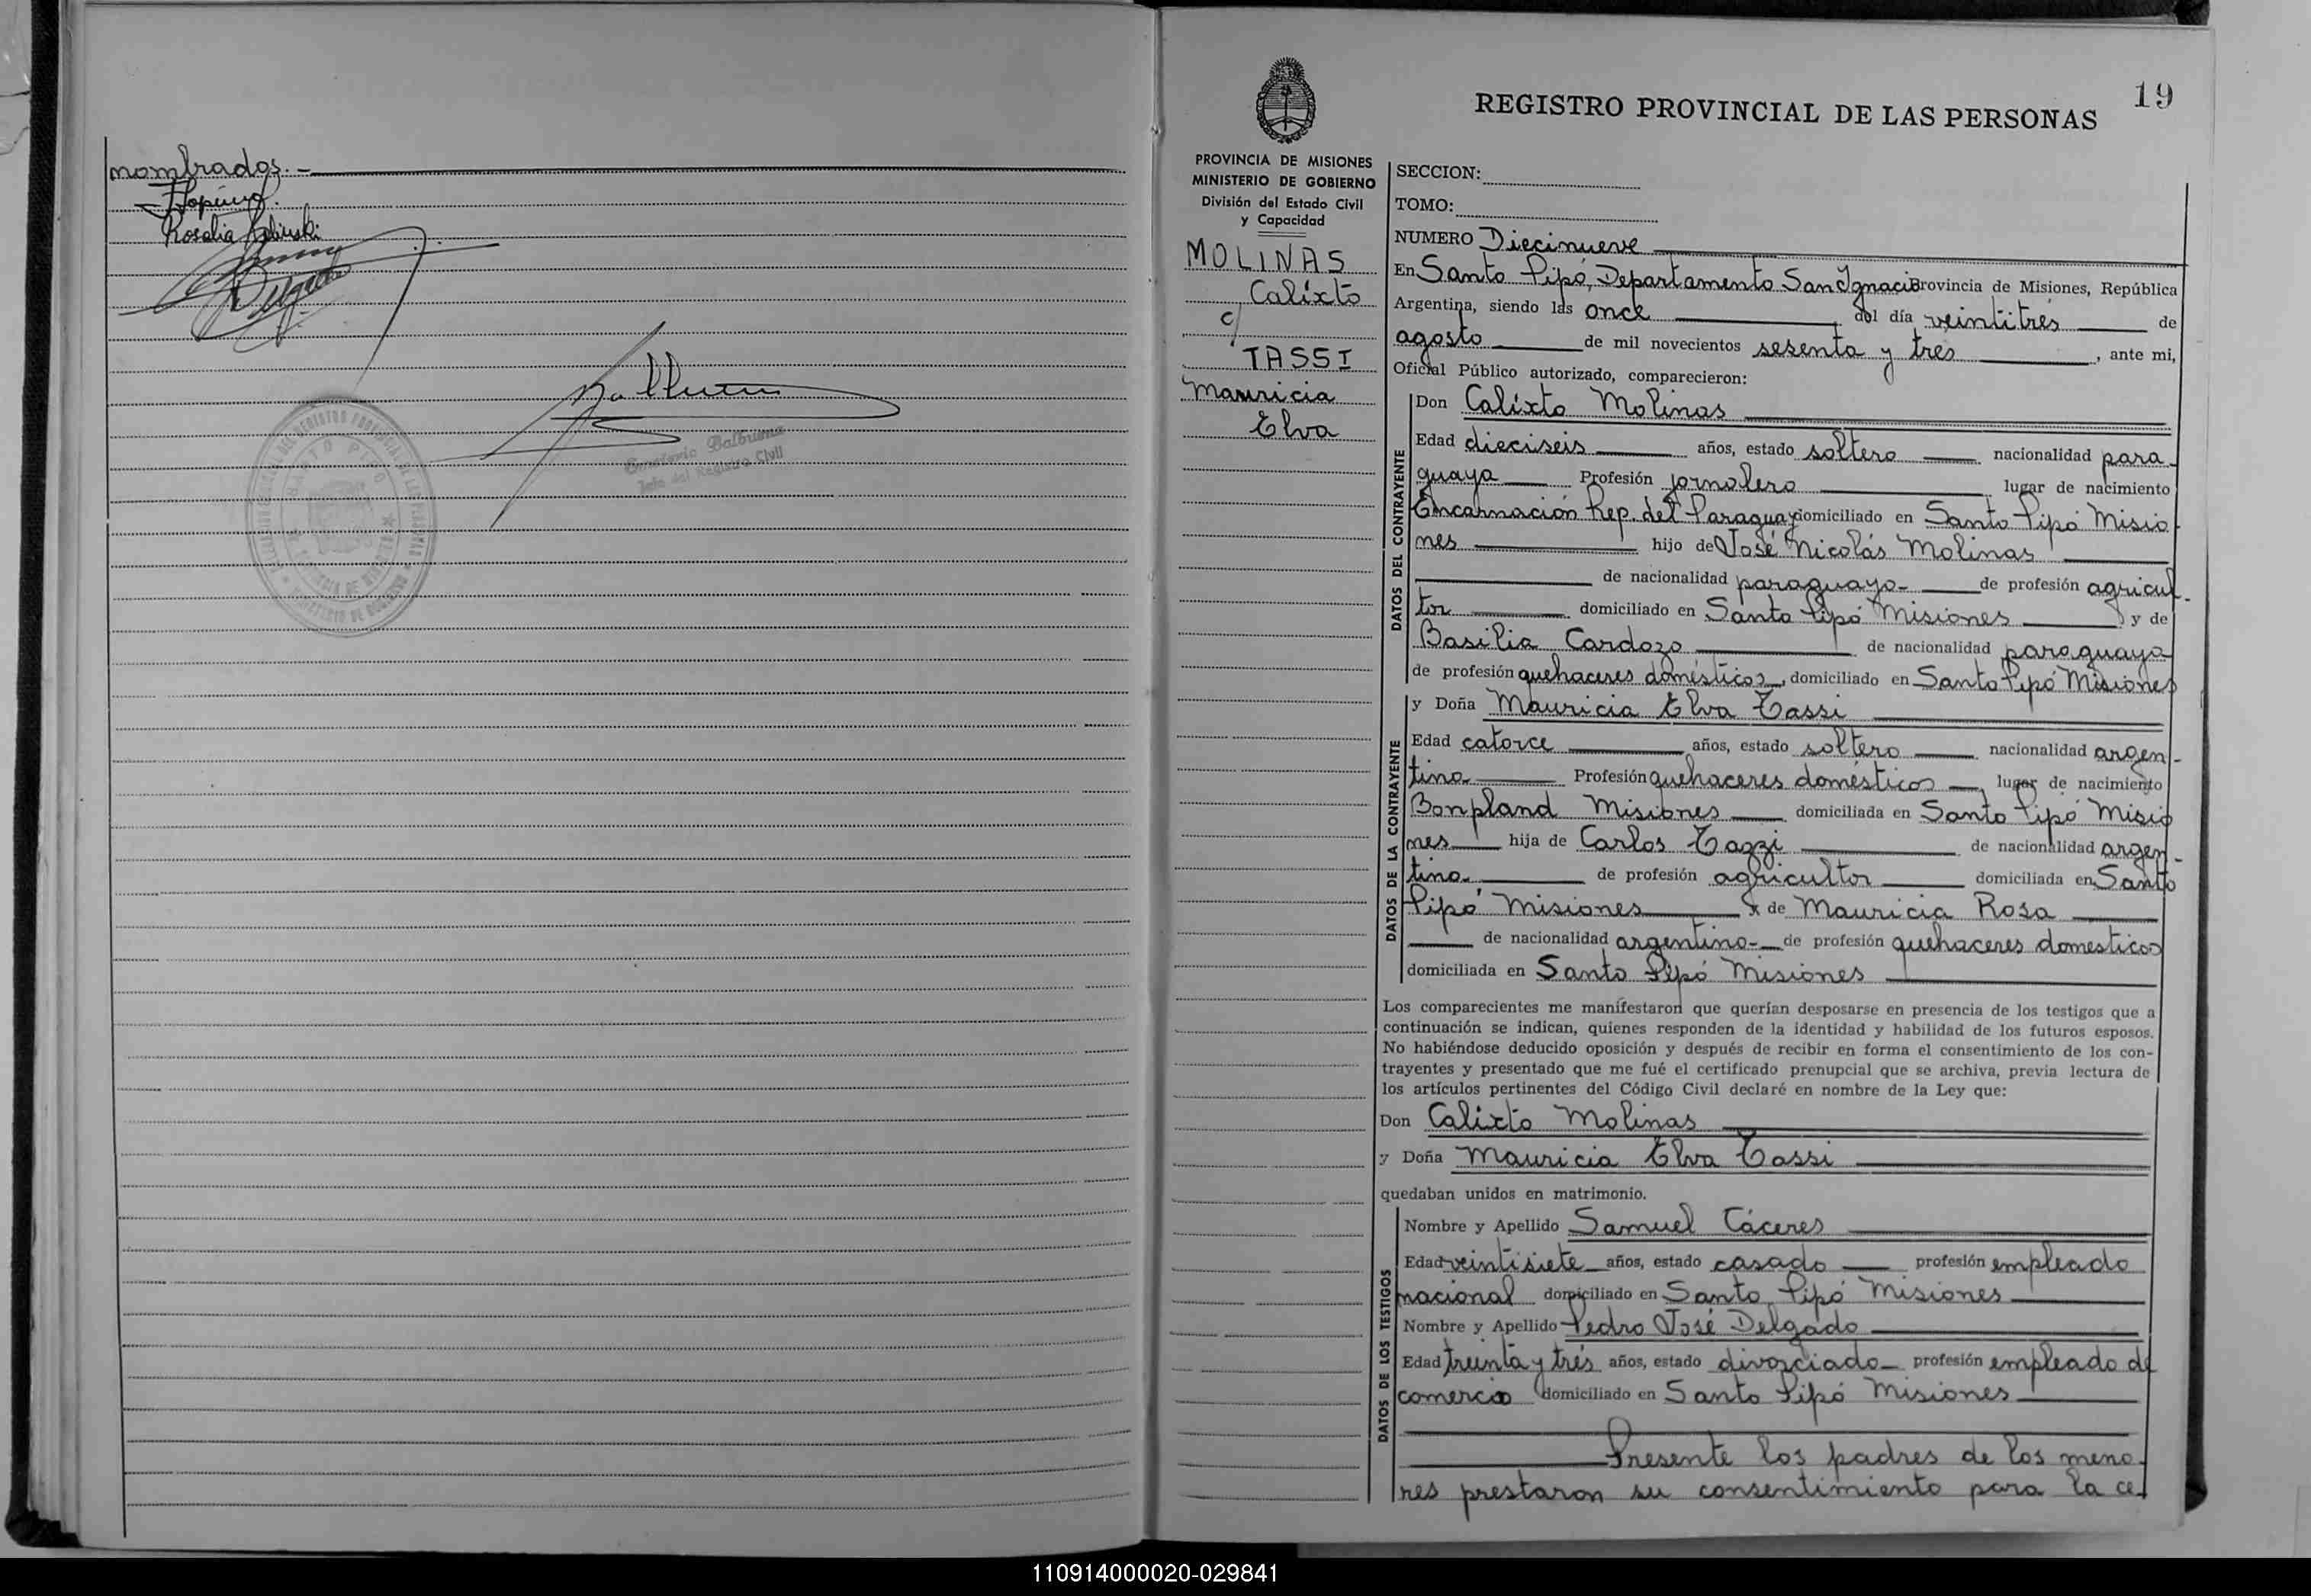 nombrados.-
Rosalia
Delgado
Jefe del Registro Civil
SANTO PIPO
19
REGISTRO PROVINCIAL DE LAS PERSONAS
PROVINCIA DE MISIONES
MINISTERIO DE GOBIERNO
División del Estado Civil
y Capacidad
MOLINAS
Calixto
c/
TASSI
Mauricia
Elva
SECCION:
TOMO:
NUMERO Diecinueve
En Santo Pipó, Departamento San Ignacio Provincia de Misiones, República
Argentina, siendo las once del día veintitrés de
agosto de mil novecientos sesenta y tres, ante mi,
Oficial Público autorizado, comparecieron:
DATOS DEL CONTRAYENTE
Don Calixto Molinas
Edad dieciseis años, estado soltero nacionalidad para-
guaya Profesión jornalero lugar de nacimiento
Encarnación Rep. del Paraguay domiciliado en Santo Pipó Misio
nes hijo de José Nicolás Molinas
de nacionalidad paraguayo- de profesión agricul-
tor domiciliado en Santo Pipó Misiones y de
Basilia Cardozo de nacionalidad paraguaya
de profesión quehaceres domésticos, domiciliado en Santo Pipó Misiones
DATOS DE LA CONTRAYENTE
y Doña Mauricia Elva Tassi
Edad catorce años, estado soltero nacionalidad argen-
tina Profesión quehaceres domésticos lugar de nacimiento
Bonpland Misiones domiciliada en Santo Pipó Misio
nes hija de Carlos Tazzi de nacionalidad argen-
tina de profesión agricultor domiciliada en Santo
Pipó Misiones y de Mauricia Rosa
de nacionalidad argentina- de profesión quehaceres domesticos
domiciliada en Santo Pipó Misiones
Los comparecientes me manifestaron que querían desposarse en presencia de los testigos que a
continuación se indican, quienes responden de la identidad y habilidad de los futuros esposos.
No habiéndose deducido oposición y después de recibir en forma el consentimiento de los con-
trayentes y presentado que me fué el certificado prenupcial que se archiva, previa lectura de
los artículos pertinentes del Código Civil declaré en nombre de la Ley que:
Don Calixto Molinas
y Doña Mauricia Elva Tassi
quedaban unidos en matrimonio.
DATOS DE LOS TESTIGOS
Nombre y Apellido Samuel Cáceres
Edad veintisiete años, estado casado profesión empleado
nacional domiciliado en Santo Pipó Misiones
Nombre y Apellido Pedro José Delgado
Edad treinta y trés años, estado divorciado- profesión empleado de
comercio domiciliado en Santo Pipó Misiones
Presente los padres de los meno-
res prestaron su consentimiento para la ce-
110914000020-029841